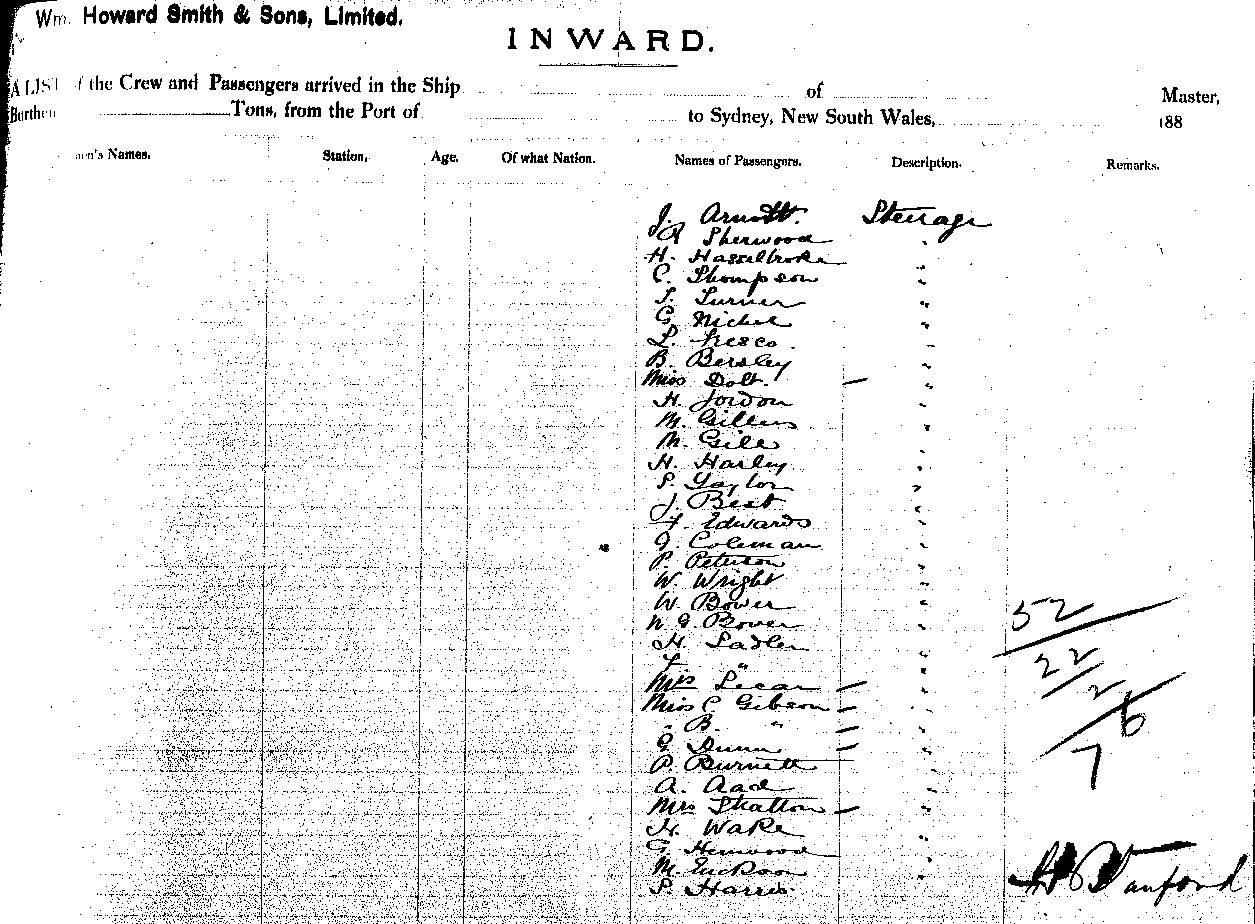 Wm. Howard Smith & Sons, Limited.
INWARD.
A LIST of the Crew and Passengers arrived in the Ship of Master,
Burthen Tons, from the Port of to Sydney, New South Wales, 188
Names. Station. Age. Of what Nation. Names of Passengers. Description. Remarks.
J. Arnott. Steerage
R Sherwood "
H. Hasselbroke "
C. Thompson "
T. Turner "
G. Nickel "
L. "
B. Bersley "
Miss Dolt. — "
H. Jordon "
M. Gillens "
M. Gill
H. Harley "
S. Taylor "
J. Best "
F. Edwards "
J. Coleman "
P. Peterson "
W. Wright "
W. Bower " 52
W. G. Bower "
H. Sadler "
" " 22
Mrs — "
Miss C Gibson — " 2 6
" B. " — "
G. Dunn — "
P. Burnett " 7
A. Aad "
Mrs Shatton — "
H. Wake
G. Henwood "
M. Erickson "
S. Harris. Stanford